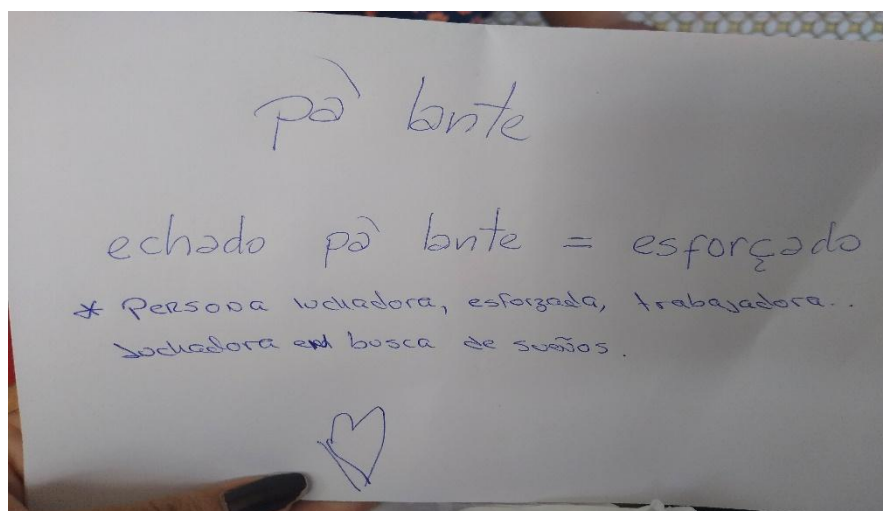 pà lante
echado pà lante = esforçado
* Persona luchadora, esforzada, trabajadora..
luchadora en busca de sueños.